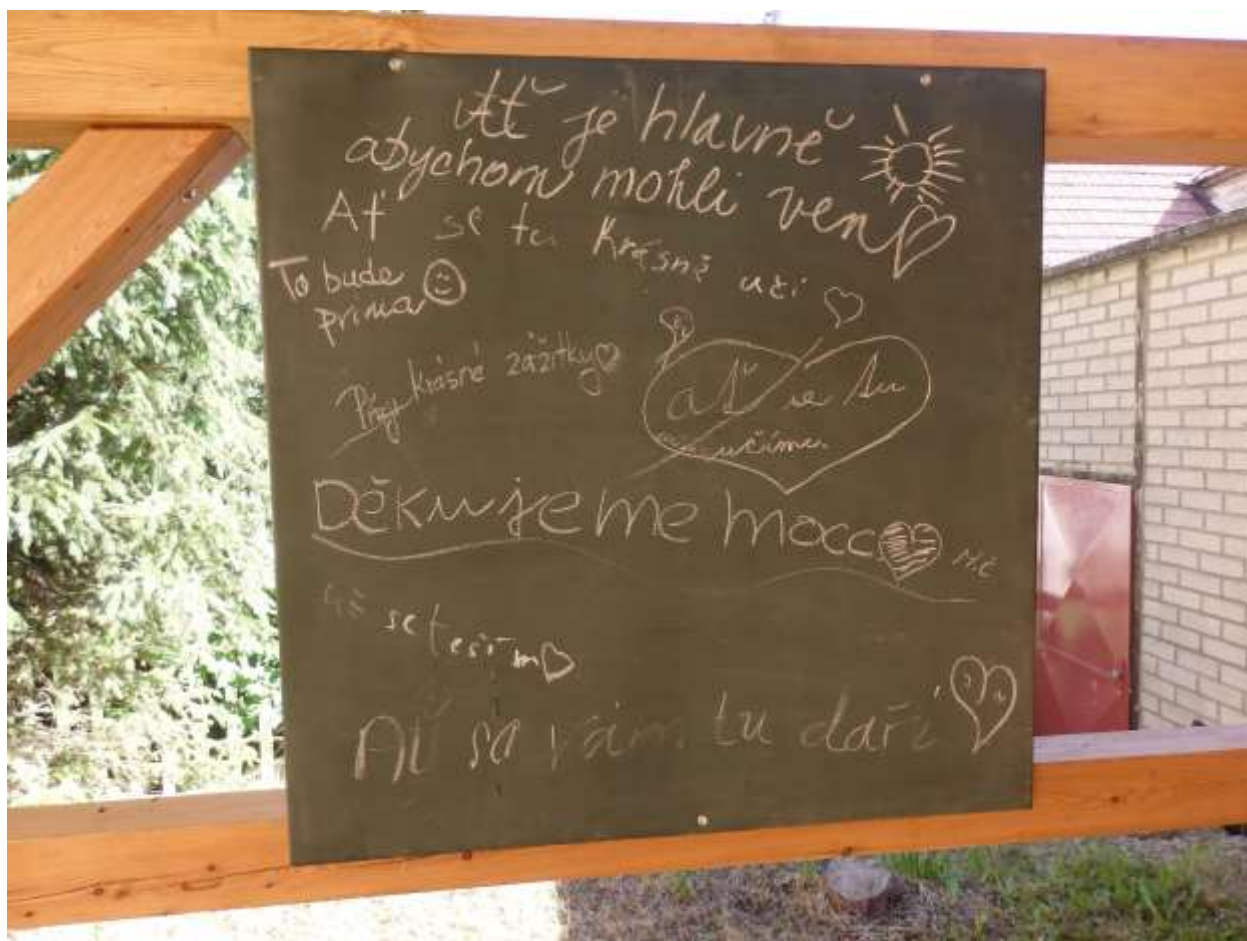 Ať je hlavně
abychom mohli ven
Ať se tu krásně učí
To bude
prima
krásné zážitky
ať se tu
učíme
Děkujeme mocc
M.Č
se těším
Ať se vám tu daří